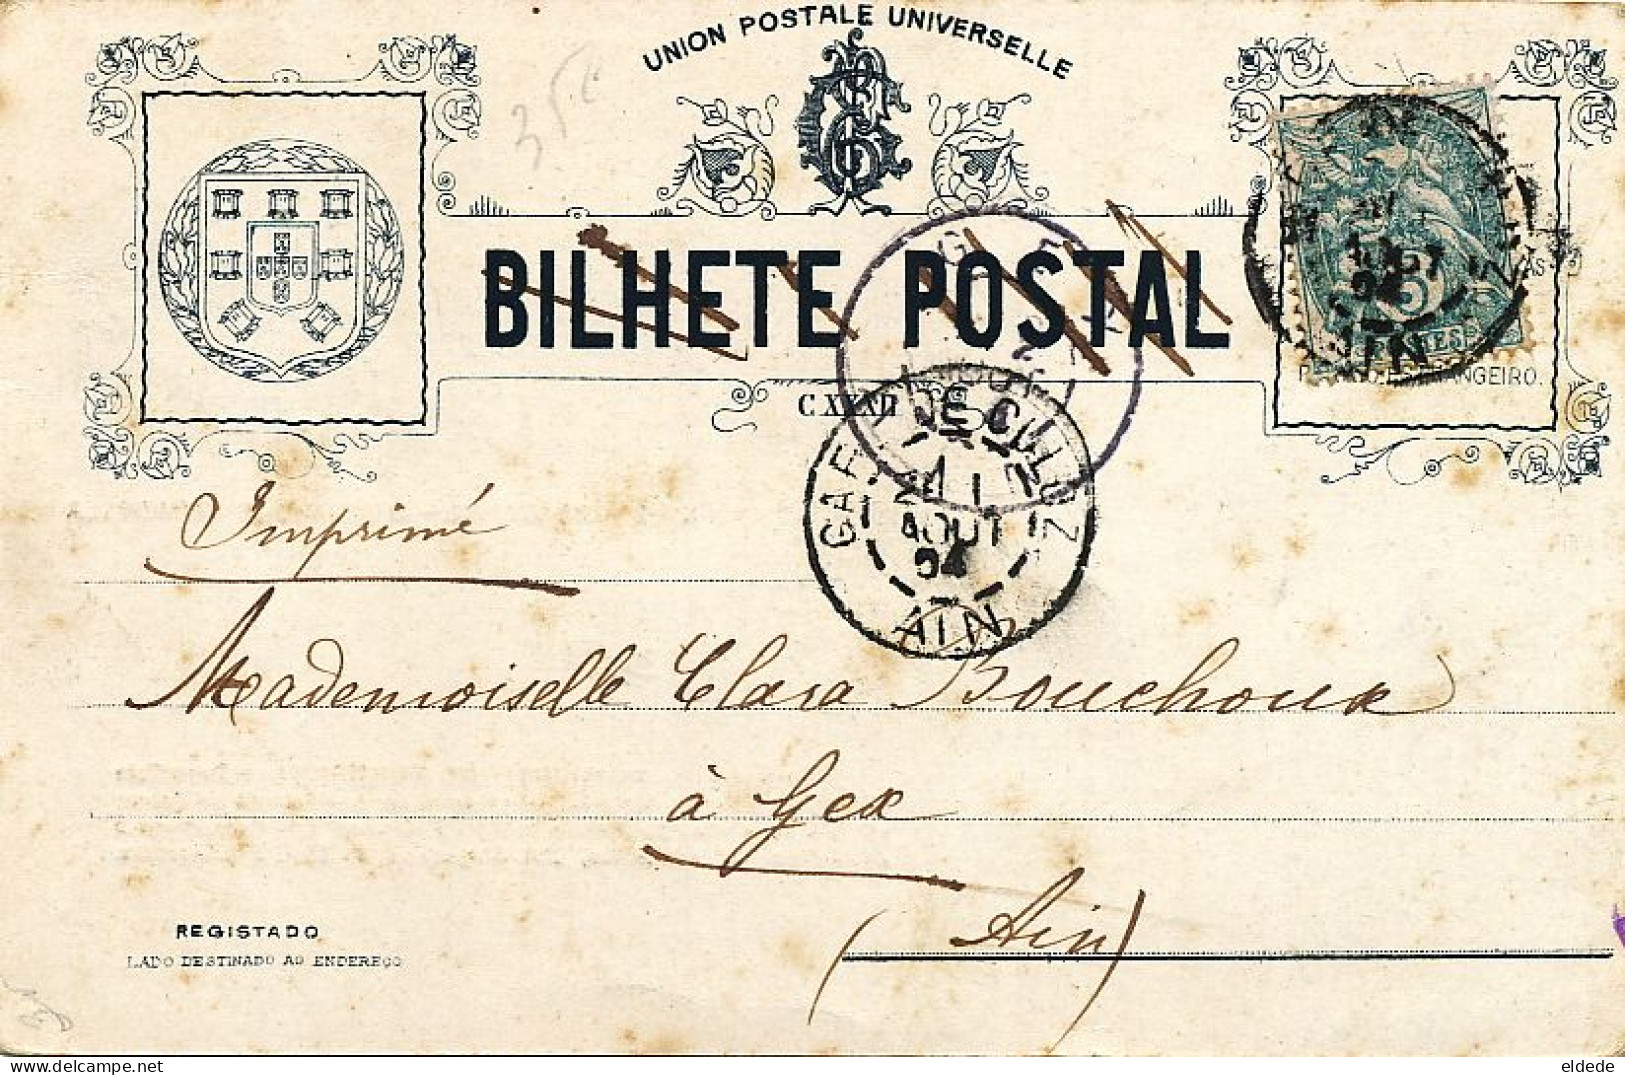 UNION POSTALE UNIVERSELLE
35c
BILHETE POSTAL
C XXXII
PORTO ESTRANGEIRO.
GARE DE CULOZ
AOUT
04
AIN
Imprimé
Mademoiselle Clara Bouchoux
à Gex
(Ain)
REGISTADO
LADO DESTINADO AO ENDEREÇO
eldede